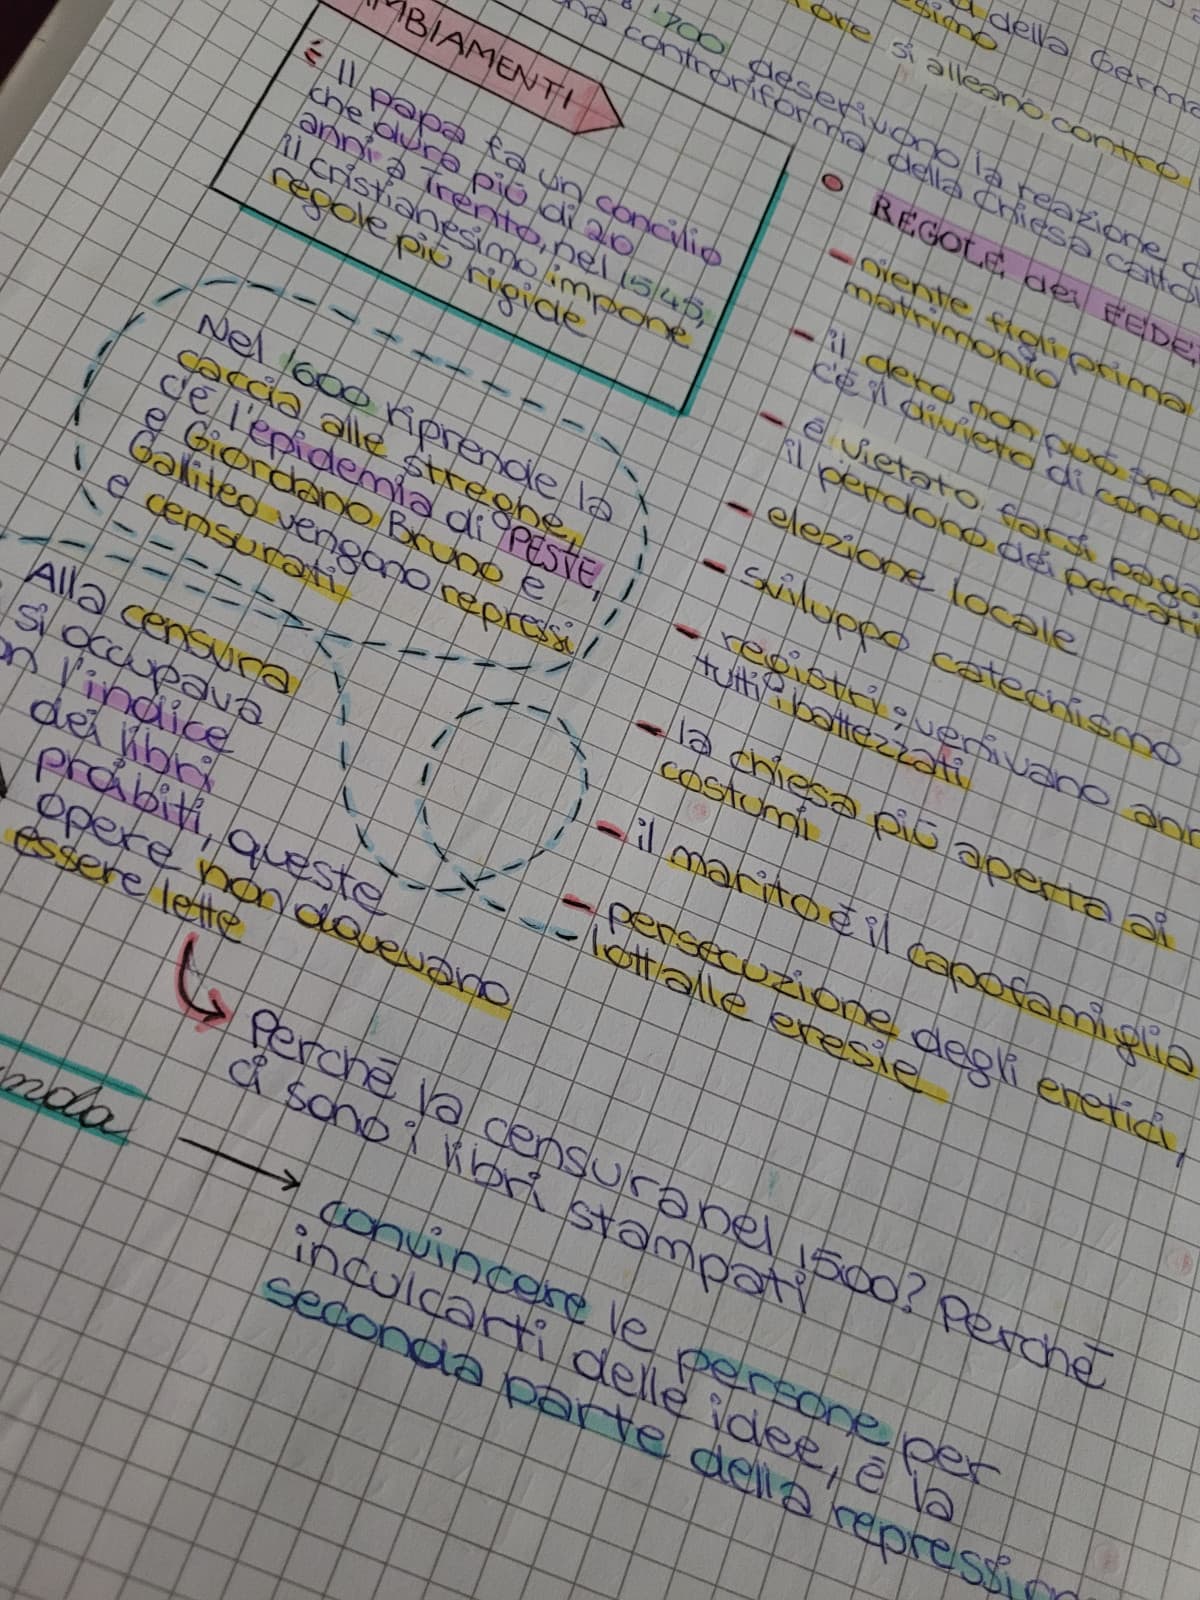 della Germa
si alleano contro
'700 descrivono la reazione
controriforma della Chiesa catto
MBIAMENTI
Il papa fa un concilio
che dura più di 20
anni a Trento, nel 1545,
il cristianesimo impone
regole più rigide
Nel 1600 riprende la
caccia alle streghe,
c'è l'epidemia di PESTE,
e Giordano Bruno e
Galileo vengono repressi
e censurati
Alla censura
si occupava
l'indice
dei libri
proibiti, queste
opere non dovevano
essere lette
Perchē la censura nel 1500? Perchē
ci sono i libri stampati
convincere le persone per
inculcarti delle idee, ē la
seconda parte della repressi
REGOLE dei FEDE
- niente figli prima
matrimonio
- il clero non può spo
c'è il divieto di concu
- è vietato farsi paga
il perdono dei peccati
- elezione locale
- sviluppo catechismo
- registri: venivano ann
tutti i battezzati
- la chiesa più aperta ai
costumi
- il marito ē il capofamiglia
- persecuzione degli eretici,
lott alle eresie